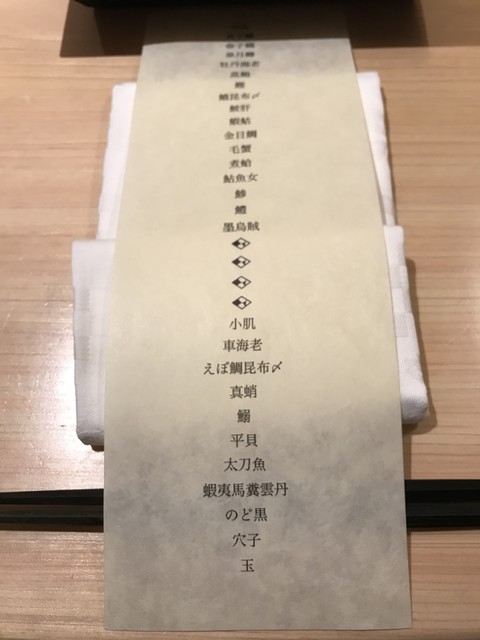 春子鯛
皐月鱒
牡丹海老
蒸鮑
鰹
鱚昆布〆
鮟肝
蝦蛄
金目鯛
毛蟹
煮蛤
鮎魚女
鯵
鱧
墨烏賊
小肌
車海老
えぼ鯛昆布〆
真蛸
鰯
平貝
太刀魚
蝦夷馬糞雲丹
のど黒
穴子
玉